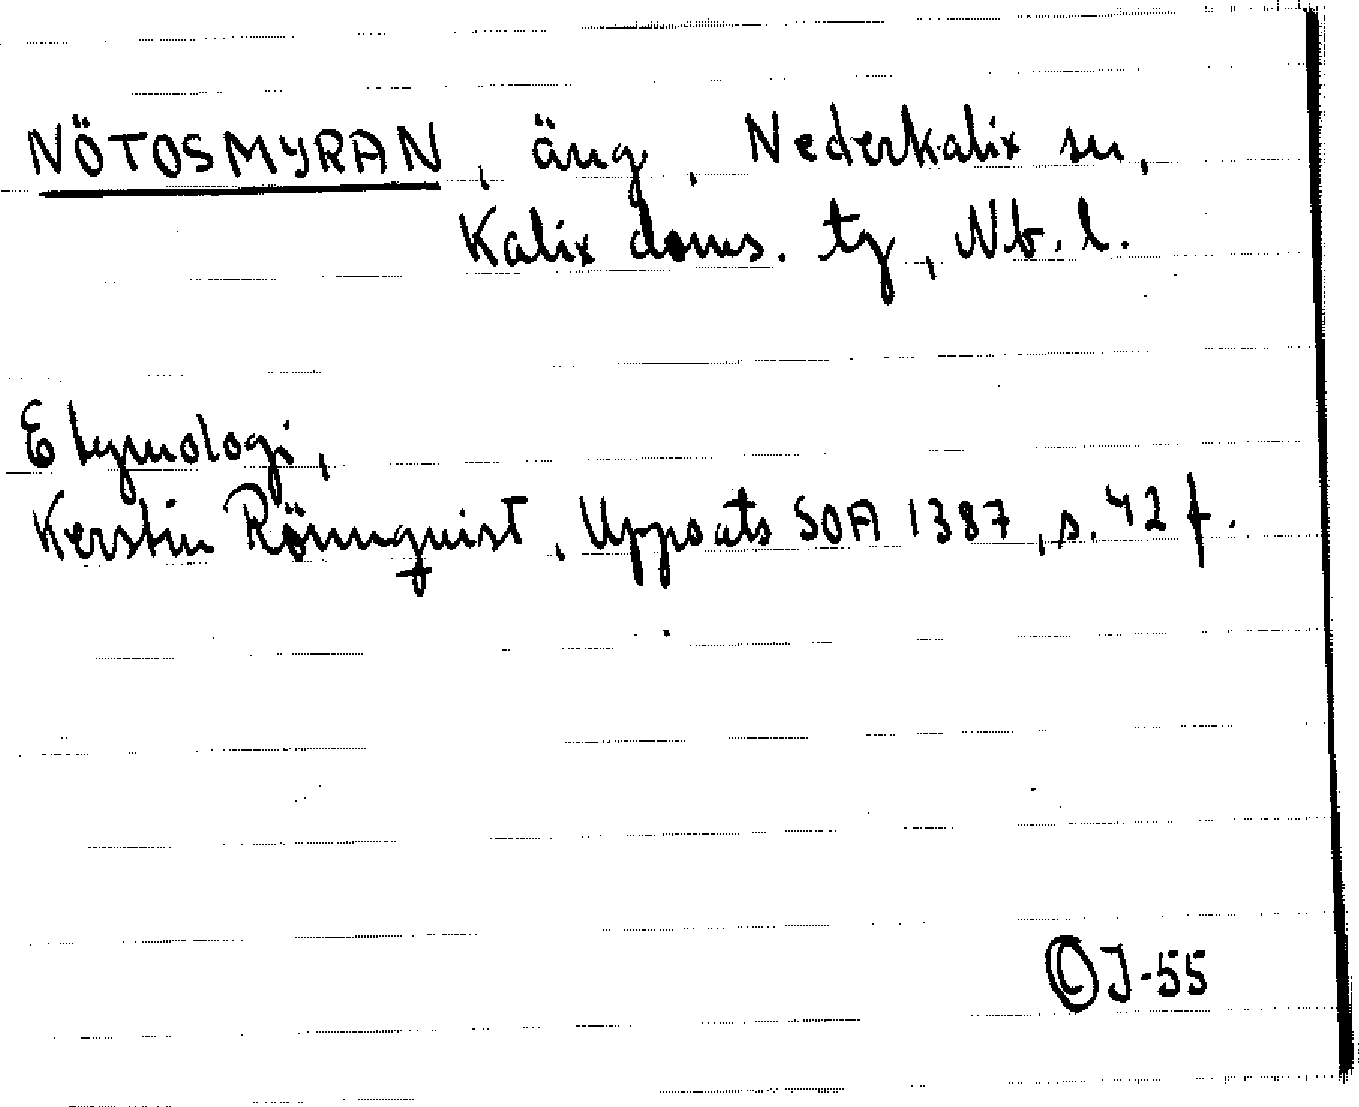 NÖTOSMYRAN, äng, Nederkalix sn,
Kalix doms. tg, Nb. l.
Etymologi,
Kerstin Rönnquist, Uppsats SOA 1387, s. 42 f.
©J-55